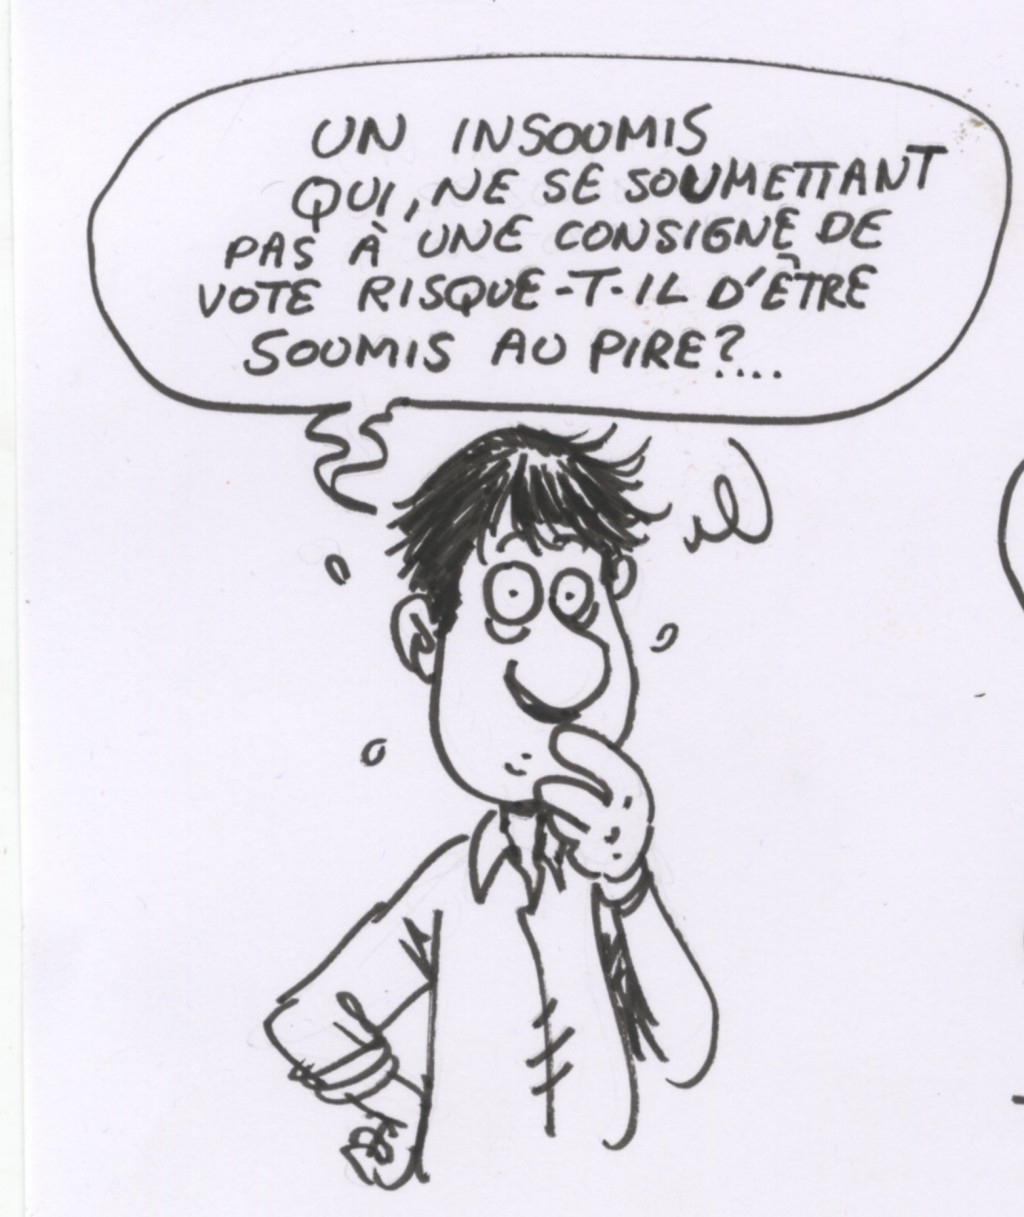 UN INSOUMIS
QUI, NE SE SOUMETTANT
PAS À UNE CONSIGNE DE
VOTE RISQUE-T-IL D'ÊTRE
SOUMIS AU PIRE?....